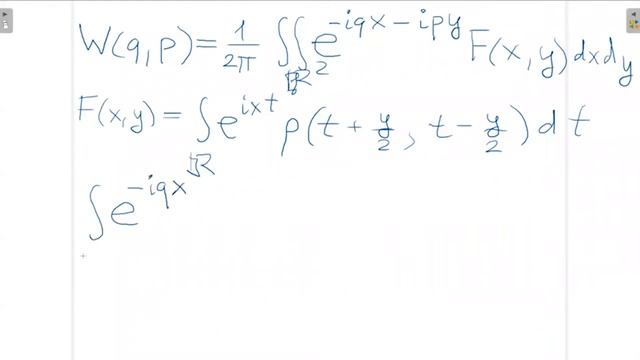 W(q,p) = 1/2π ∬_ℝ² e^{-iqx - ipy} F(x,y) dx dy
F(x,y) = ∫_ℝ e^{ixt} ρ(t + y/2, t - y/2) dt
∫ e^{-iqx}